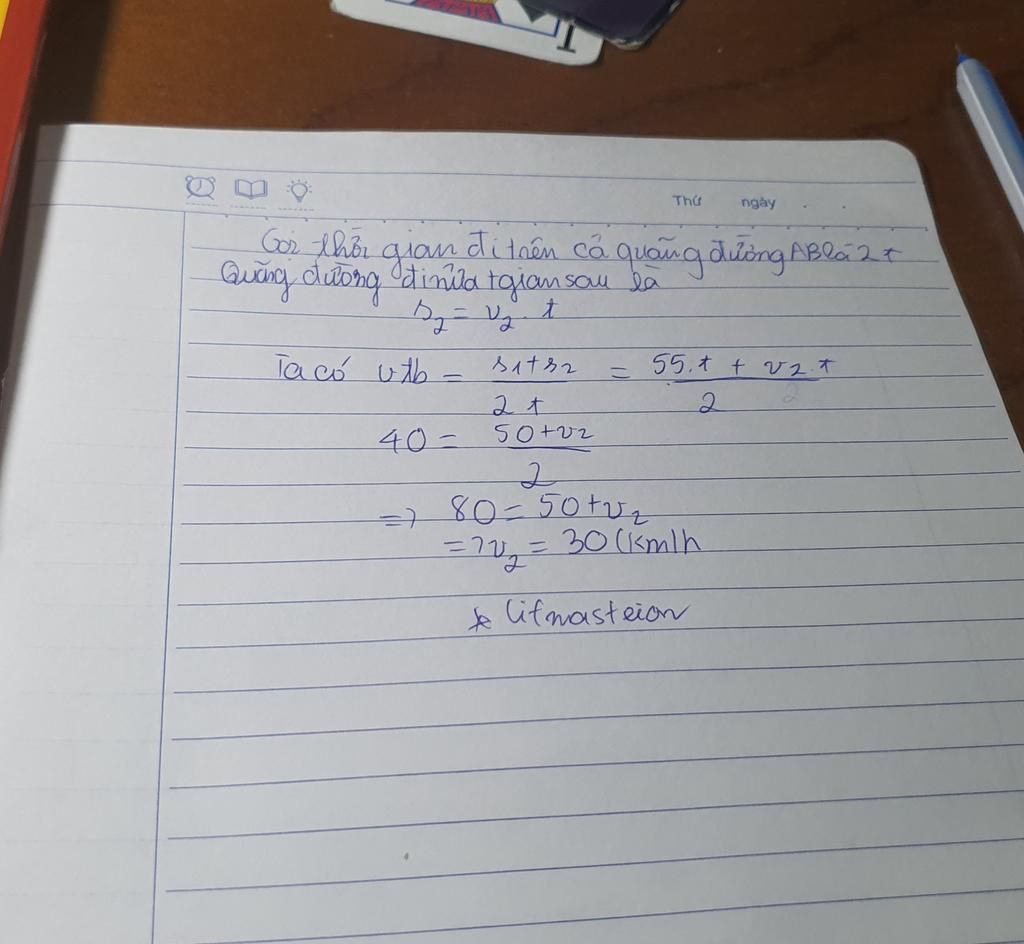 Thứ ngày
Gọi thời gian đi trên cả quãng đường AB là 2t
Quãng đường đi nửa tgian sau là
s₂ = v₂ . t
Ta có vtb = (s1+s2)/(2t) = (55.t + v2.t)/2
40 = (50+v2)/2
=> 80 = 50+v₂
=> v₂ = 30 (km/h
* litmasteion